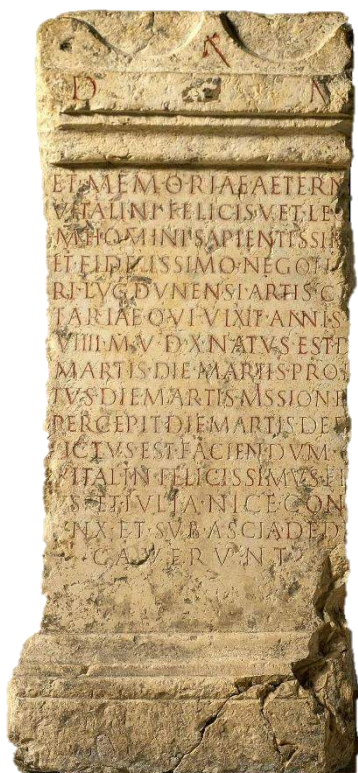 D M
ET·MEMORIAE AETERN
VITALINI·FELICIS VET·LE
M·HOMINI·SAPIENTISSIM
ET·FIDELISSIMO·NEGOTI
RI·LVGDVNENSI·ARTIS·C
TARIAE QVI VIXIT·ANNIS
VIIII·M·V·D·X·NATVS EST D
MARTIS·DIE·MARTIS·PROF
TVS·DIE MARTIS·MISSION
PERCEPIT·DIE MARTIS·DE
VICTVS·EST·FACIENDVM·
VITALIN·FELICISSIMVS·F
S·ET·IVLIA·NICE·CON
NX·ET·SVB·ASCIA DED
CAVERVNT